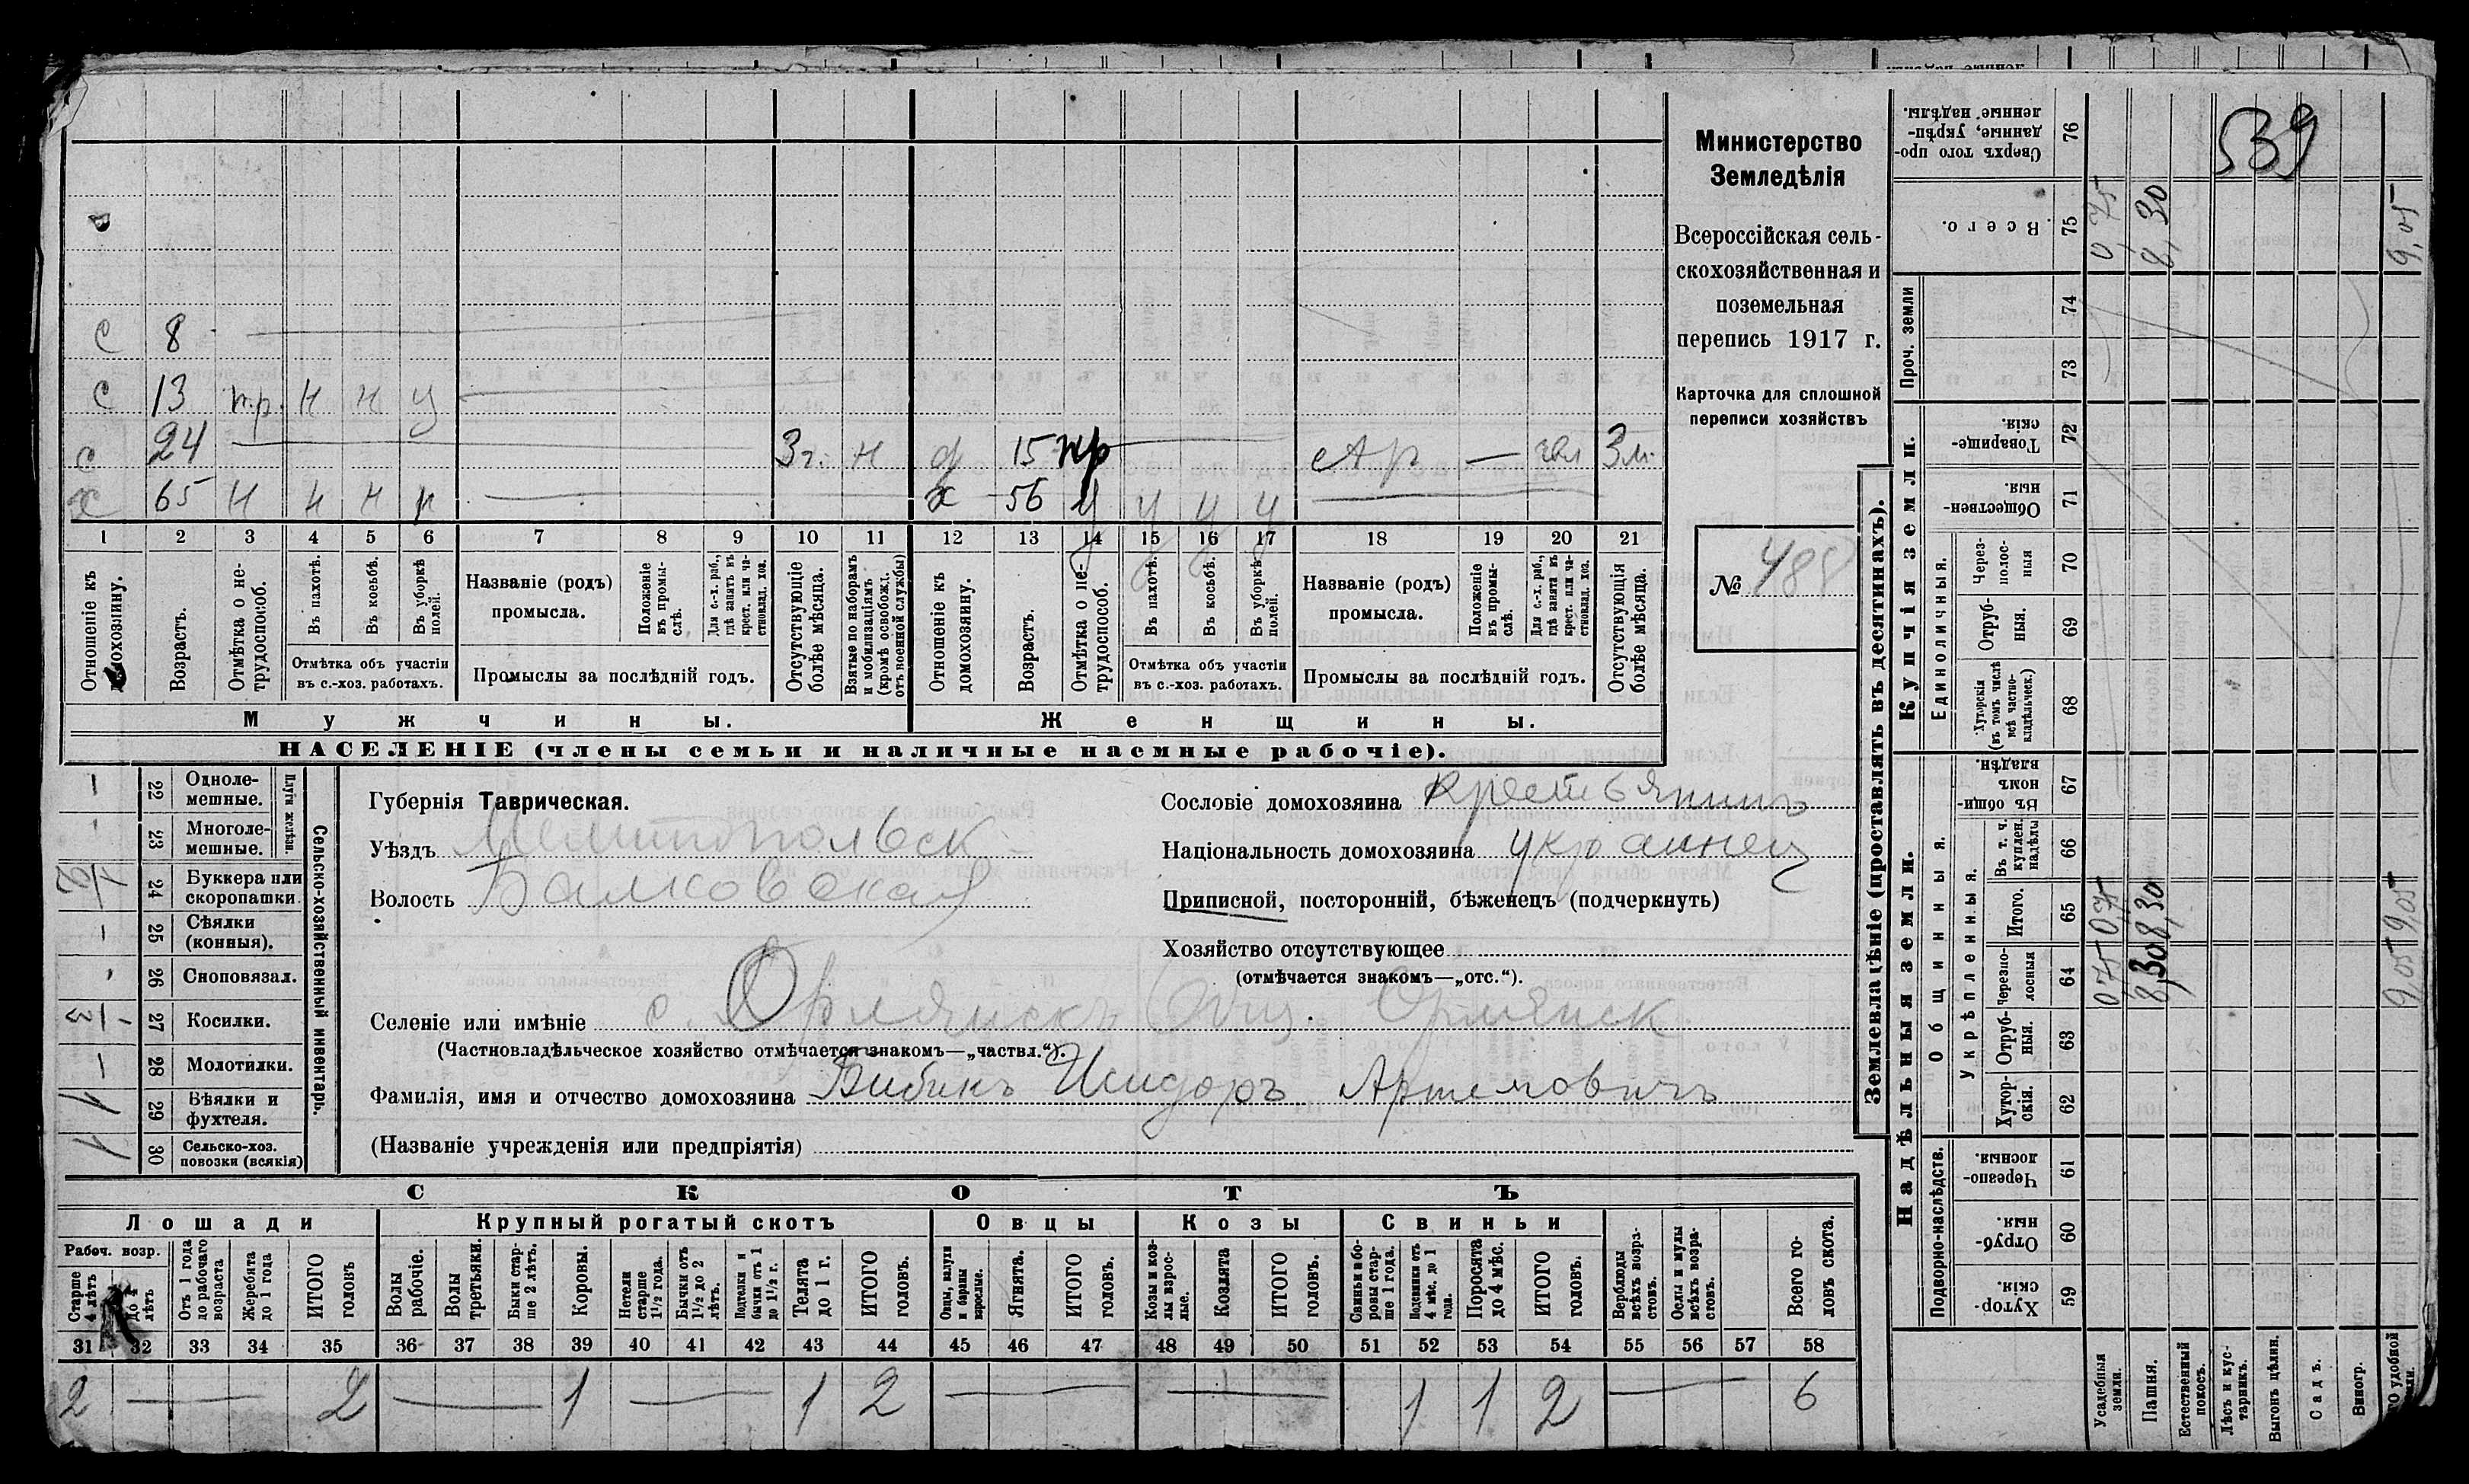 Министерство
Земледѣлія
Всероссійская сель-
скохозяйственная и
поземельная
перепись 1917 г.
Карточка для сплошной
переписи хозяйствъ
№ 488
539
с 8
с 13 н.р. н н у
с 24 3 г. н д 15 нр — чал 3 м.
х 65 н н н н х 56 у у у у
1 2 3 4 5 6 7 8 9 10 11 12 13 14 15 16 17 18 19 20 21
Отношеніе къ домохозяину.
Возрастъ.
Отмѣтка о не-трудоспособ.
Въ пахотѣ.
Въ косьбѣ.
Въ уборкѣ полей.
Отмѣтка объ участіи
въ с.-хоз. работахъ.
Названіе (родъ)
промысла.
Положеніе въ промы-слѣ.
Для с.-х. раб., гдѣ занятъ въ крест. или ча-стновлад. хоз.
Промыслы за послѣдній годъ.
Отсутствующіе болѣе мѣсяца.
Взятые по наборамъ и мобилизаціямъ (кромѣ освобожд. отъ военной службы)
Отношеніе къ домохозяину.
Возрастъ.
Отмѣтка о не-трудоспособ.
Въ пахотѣ.
Въ косьбѣ.
Въ уборкѣ полей.
Отмѣтка объ участіи
въ с.-хоз. работахъ.
Названіе (родъ)
промысла.
Положеніе въ промы-слѣ.
Для с.-х. раб., гдѣ занятъ въ крест. или ча-стновлад. хоз.
Промыслы за послѣдній годъ.
Отсутствующія болѣе мѣсяца.
Мужчины. Женщины.
НАСЕЛЕНІЕ (члены семьи и наличные наемные рабочіе).
Сельско-хозяйственный инвентарь.
Плуги желѣзн.
22 Одноле-мешные. —
23 Многоле-мешные.
24 Буккера или скоропашки. 1/2
25 Сѣялки (конныя). —
26 Сноповязал.
27 Косилки. 1/3
28 Молотилки. —
29 Вѣялки и фухтеля. 1
30 Сельско-хоз. повозки (всякія) 1
Губернія Таврическая.
Уѣздъ Мелитопольск
Волость Балковская
Сословіе домохозяина крестьянинъ
Національность домохозяина украинец
Приписной, посторонній, бѣженецъ (подчеркнуть)
Хозяйство отсутствующее
(отмѣчается знакомъ—„отс.“).
Селеніе или имѣніе с. Орлянскъ Орлянск
(Частновладѣльческое хозяйство отмѣчается знакомъ—„частвл.“).
Фамилія, имя и отчество домохозяина Бибикъ Исидоръ Артемовичъ
(Названіе учрежденія или предпріятія)
СКОТЪ
Лошади Крупный рогатый скотъ Овцы Козы Свиньи
Рабоч. возр.
Старше 4 лѣтъ
до 4 лѣтъ
Отъ 1 года до рабочаго возраста
Жеребята до 1 года
ИТОГО головъ
Волы рабочіе.
Волы третьяки.
Быки стар-ше 2 лѣтъ.
Коровы.
Нетели старше 1½ года.
Бычки отъ 1½ до 2 лѣтъ.
Подтелки и бычки отъ 1 до 1½ г.
Телята до 1 г.
ИТОГО головъ.
Овцы, валухи и бараны взрослые.
Ягнята.
ИТОГО головъ.
Козы и коз-лы взрос-лые.
Козлята
ИТОГО головъ.
Свиньи бо-ровы стар-ше 1 года.
Подсвинки отъ 4 мѣс. до 1 года.
Поросята до 4 мѣс.
ИТОГО головъ.
Верблюды всѣхъ возра-стовъ.
Ослы и мулы всѣхъ возра-стовъ.
Всего го-ловъ скота.
31 32 33 34 35 36 37 38 39 40 41 42 43 44 45 46 47 48 49 50 51 52 53 54 55 56 57 58
2 — 2 — 1 — 1 2 — — 1 1 2 — 6
Землевладѣніе (проставлять въ десятинахъ).
Купчія земли.
Надѣльныя земли.
Сверхъ того про-данные, укрѣп-ленные надѣлы. 76
Всего. 75 0,75 8,30 9,05
Проч. земли 74 73
Товарище-скія. 72
Обществен-ныя. 71
Единоличныя.
Через-полос-ныя 70
Отруб-ныя. 69
Хуторскія (въ томъ числѣ всѣ частно-владѣльческ.) 68
Общинныя.
Въ общин-номъ владѣн. 67
Укрѣпленныя.
Въ т. ч. куплен. надѣлы 66
Итого. 65 0,75 8,30 9,05
Черезпо-лосныя 64 0,75 8,30 9,05
Отруб-ныя. 63
Хутор-скія. 62
Подворно-наслѣдств.
Черезпо-лосныя. 61
Отруб-ныя. 60
Хутор-скія. 59
Усадебныя земли.
Пашня.
Естественный покосъ.
Лѣсъ и кус-тарникъ.
Выгонъ цѣлин.
Садъ.
Виногр.
удобной